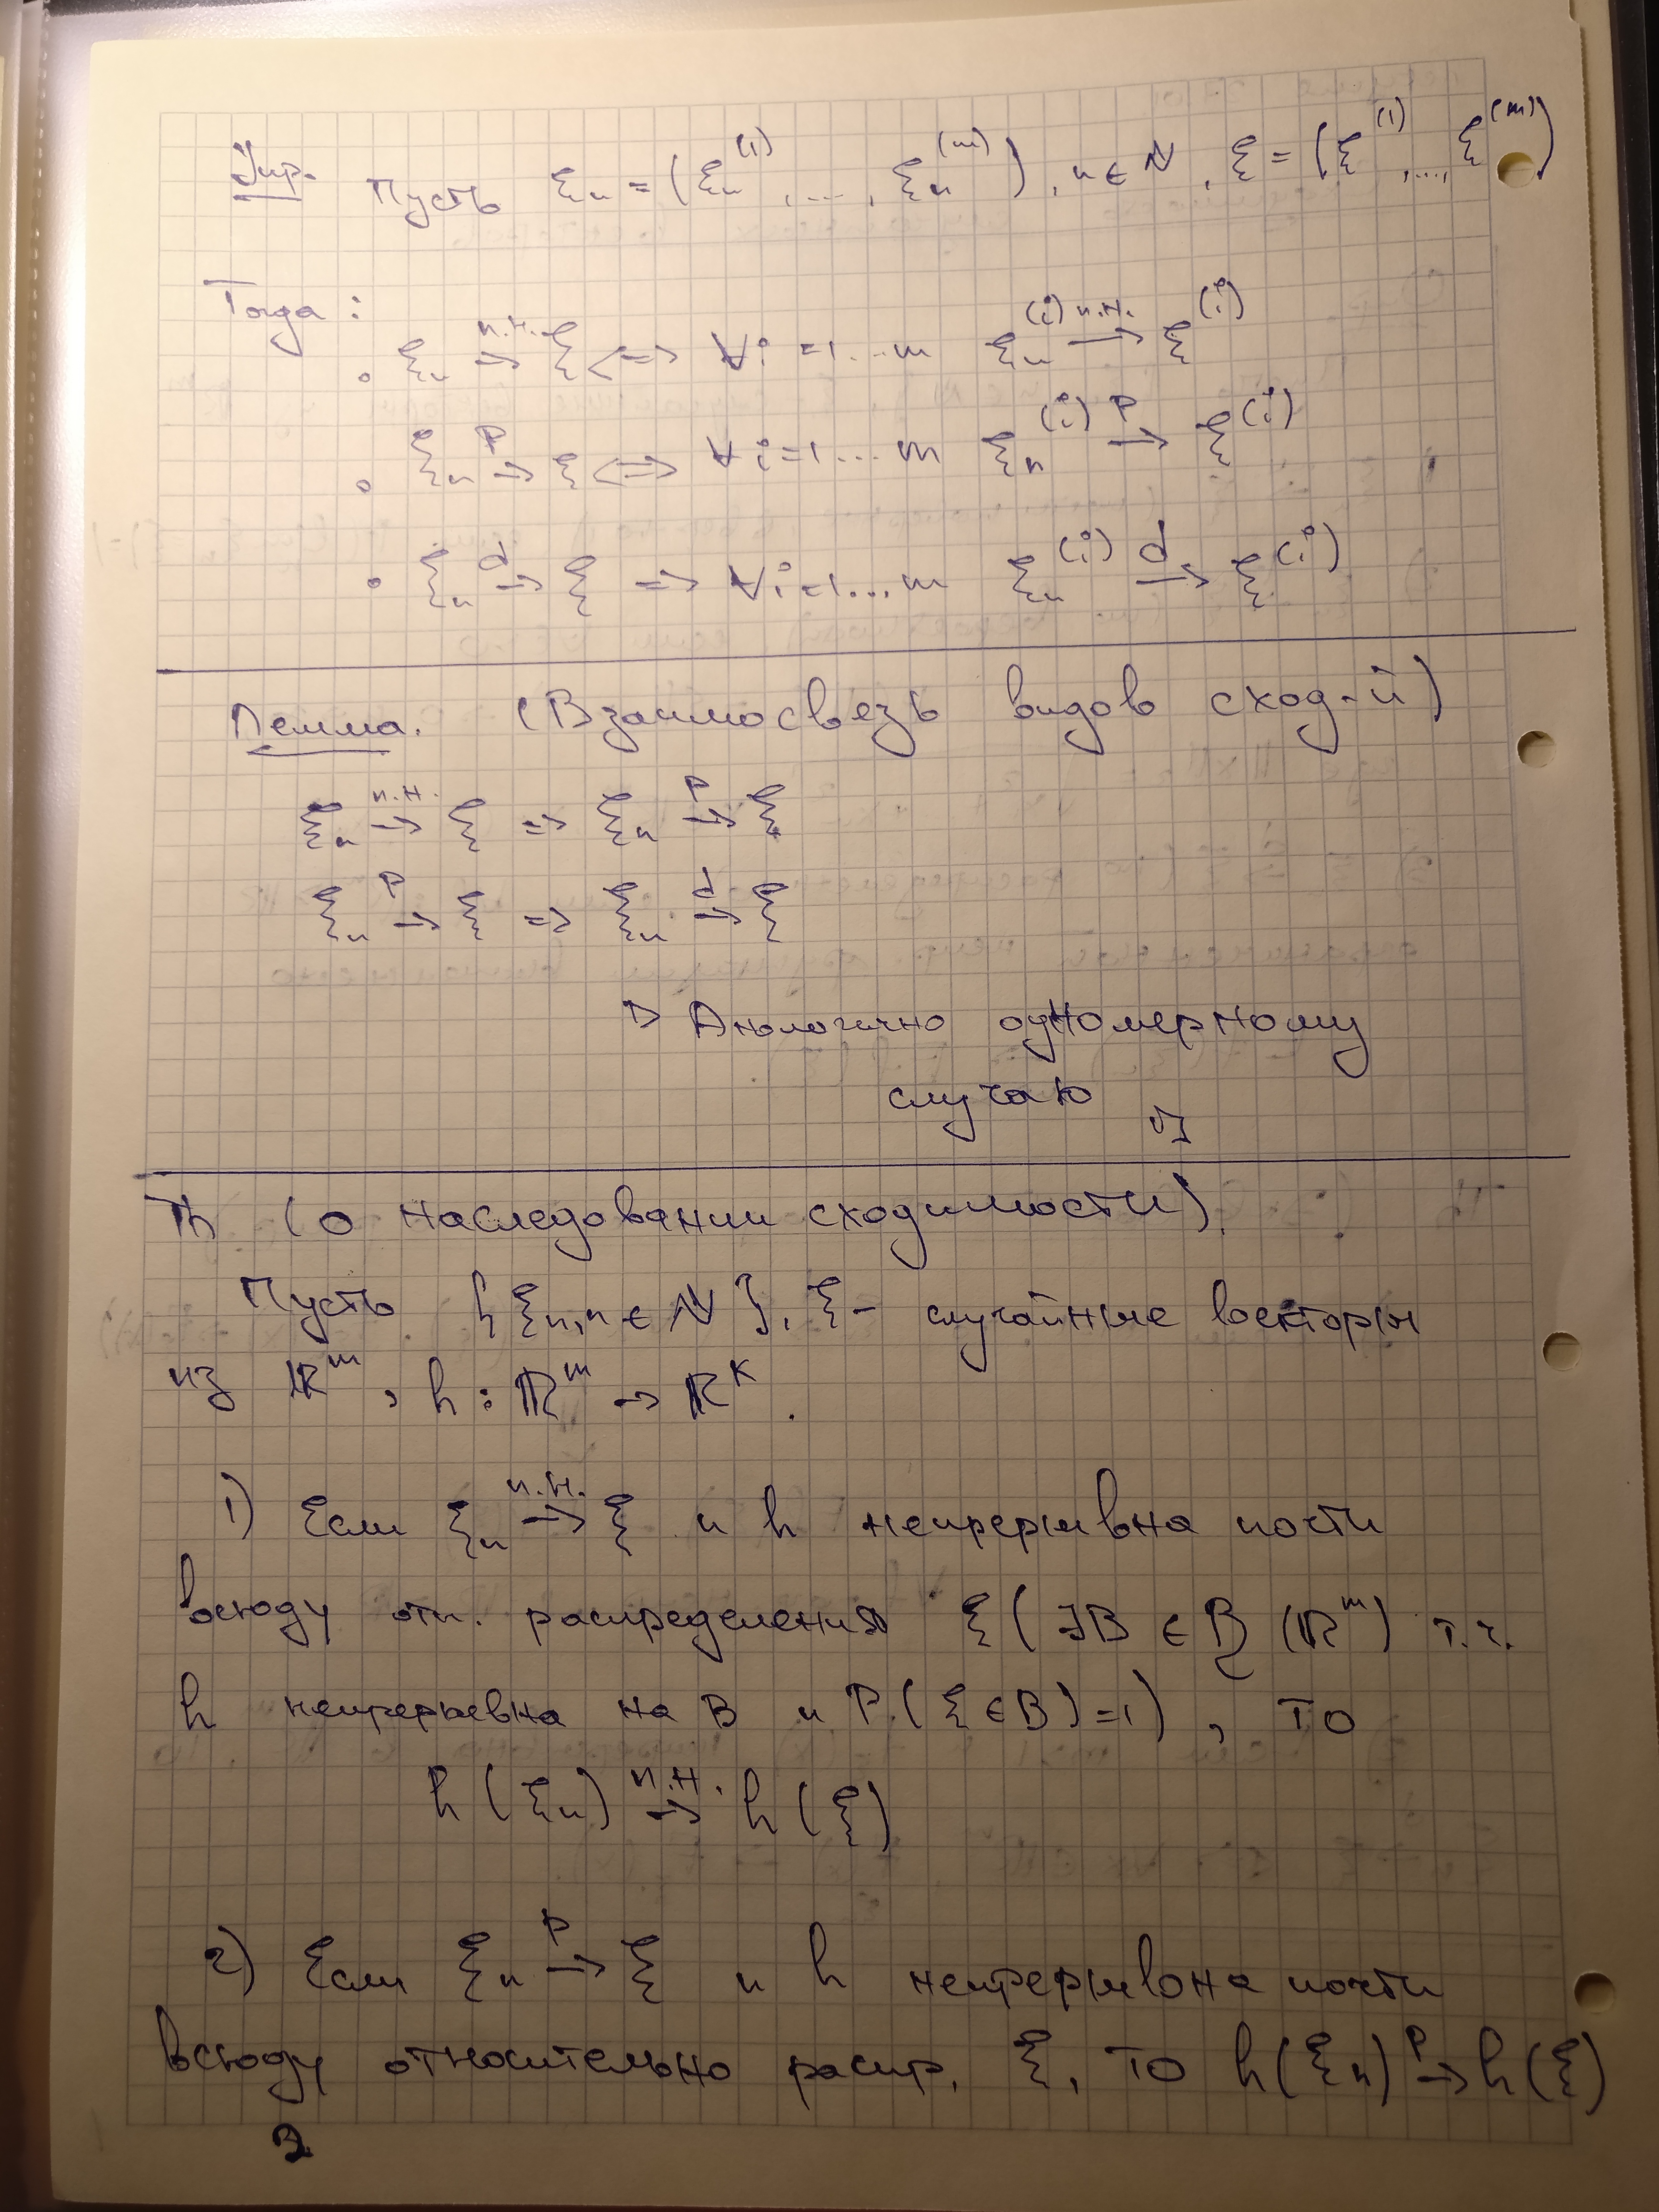 Упр. Пусть ξₙ = (ξₙ⁽¹⁾, ..., ξₙ⁽ᵐ⁾), n ∈ ℕ, ξ = (ξ⁽¹⁾, ..., ξ⁽ᵐ⁾)
Тогда:
• ξₙ →(п.н.) ξ <=> ∀i = 1...m ξₙ⁽ⁱ⁾ →(п.н.) ξ⁽ⁱ⁾
• ξₙ →(P) ξ <=> ∀i = 1...m ξₙ⁽ⁱ⁾ →(P) ξ⁽ⁱ⁾
• ξₙ →(d) ξ => ∀i = 1...m ξₙ⁽ⁱ⁾ →(d) ξ⁽ⁱ⁾
Лемма. (Взаимосвезь видов сход-й)
ξₙ →(п.н.) ξ => ξₙ →(P) ξ
ξₙ →(P) ξ => ξₙ →(d) ξ
▷ Анологично одномерному
случаю ◁
Th (о наследовании сходимости).
Пусть {ξₙ, n ∈ ℕ}, ξ - случайные векторы
из ℝᵐ, h : ℝᵐ → ℝᵏ.
1) Если ξₙ →(п.н.) ξ и h непрерывна почти
всюду отн. распределения ξ (∃B ∈ ℬ(ℝᵐ) т.ч.
h непрерывна на B и P(ξ ∈ B) = 1), то
h(ξₙ) →(п.н.) h(ξ)
2) Если ξₙ →(P) ξ и h непрерывна почти
всюду относительно распр. ξ, то h(ξₙ) →(P) h(ξ)
2